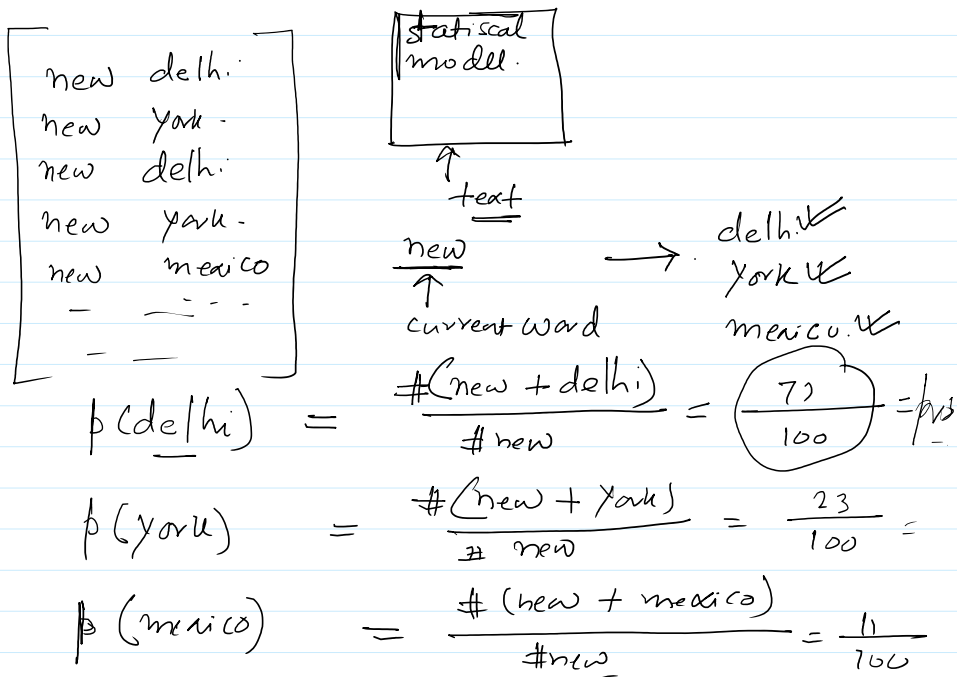 new delhi
new york
new delhi
new york
new mexico
statiscal
model.
text
new →
current word
delhi
york
mexico.
p(delhi) = #(new + delhi) / #new = 100 =
p(york) = #(new + york) / # new = 23 / 100 =
p(mexico) = # (new + mexico) / #new = 11 / 100